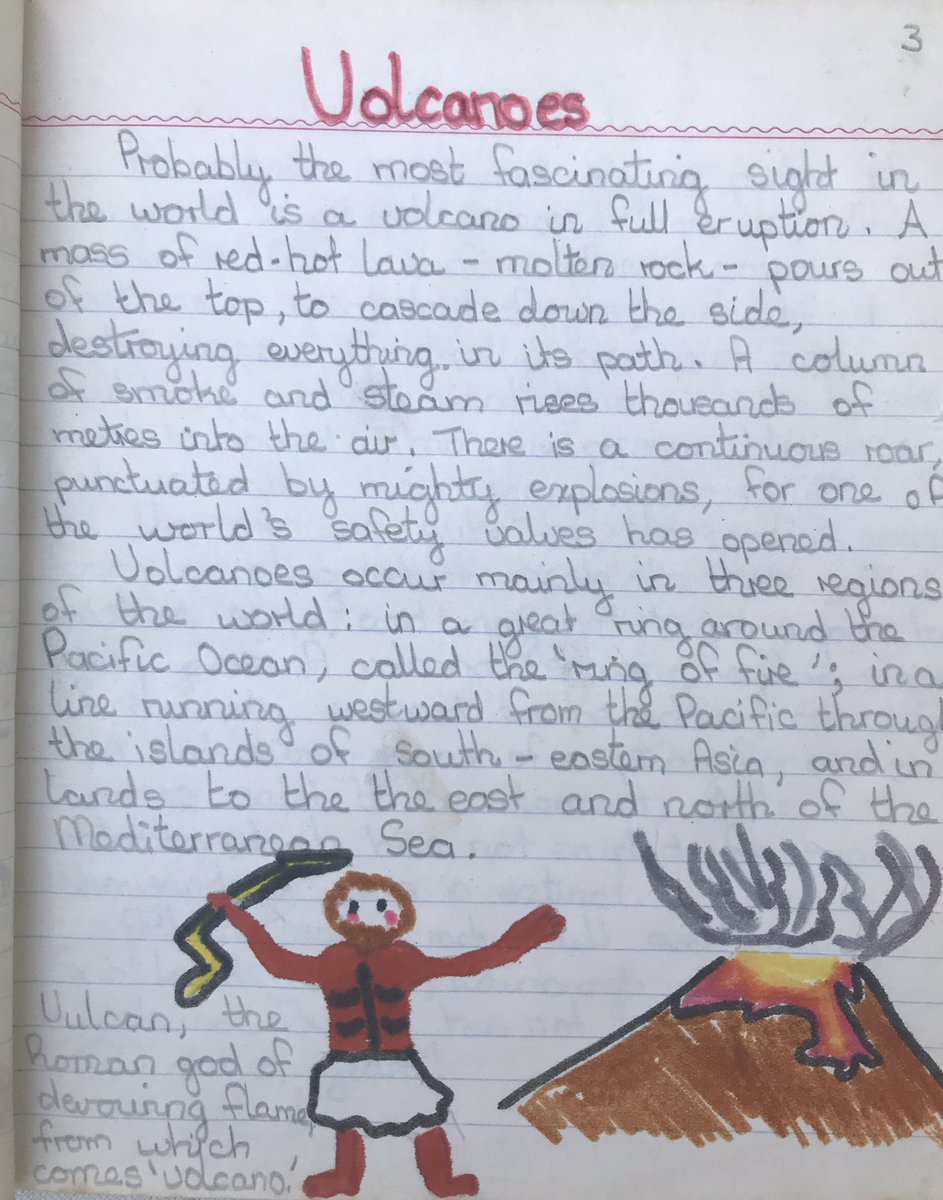 3
Volcanoes
Probably the most fascinating sight in
the world is a volcano in full eruption. A
mass of red-hot lava - molten rock - pours out
of the top, to cascade down the side,
destroying everything in its path. A column
of smoke and steam rises thousands of
metres into the air. There is a continuous roar,
punctuated by mighty explosions, for one of
the world's safety valves has opened.
Volcanoes occur mainly in three regions
of the world: in a great ring around the
Pacific Ocean, called the 'ring of fire'; in a
line running westward from the Pacific throug
the islands of south-eastern Asia, and in
lands to the the east and north of the
Mediterranean Sea.
Vulcan, the
Roman god of
devouring flame,
from which
comes 'volcano'.